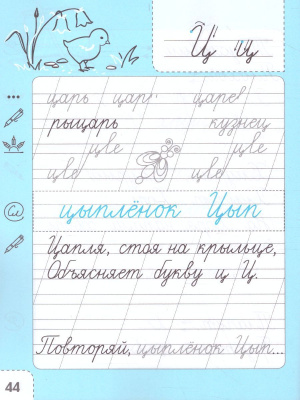 Ц ц ц
царь царь царев
рыцарь кузнец
цве цве
цве цве
Сл
цыплёнок Цып
Цапля, стоя на крыльце,
Объясняет букву ц Ц.
Повторяй, цыплёнок Цып...
44